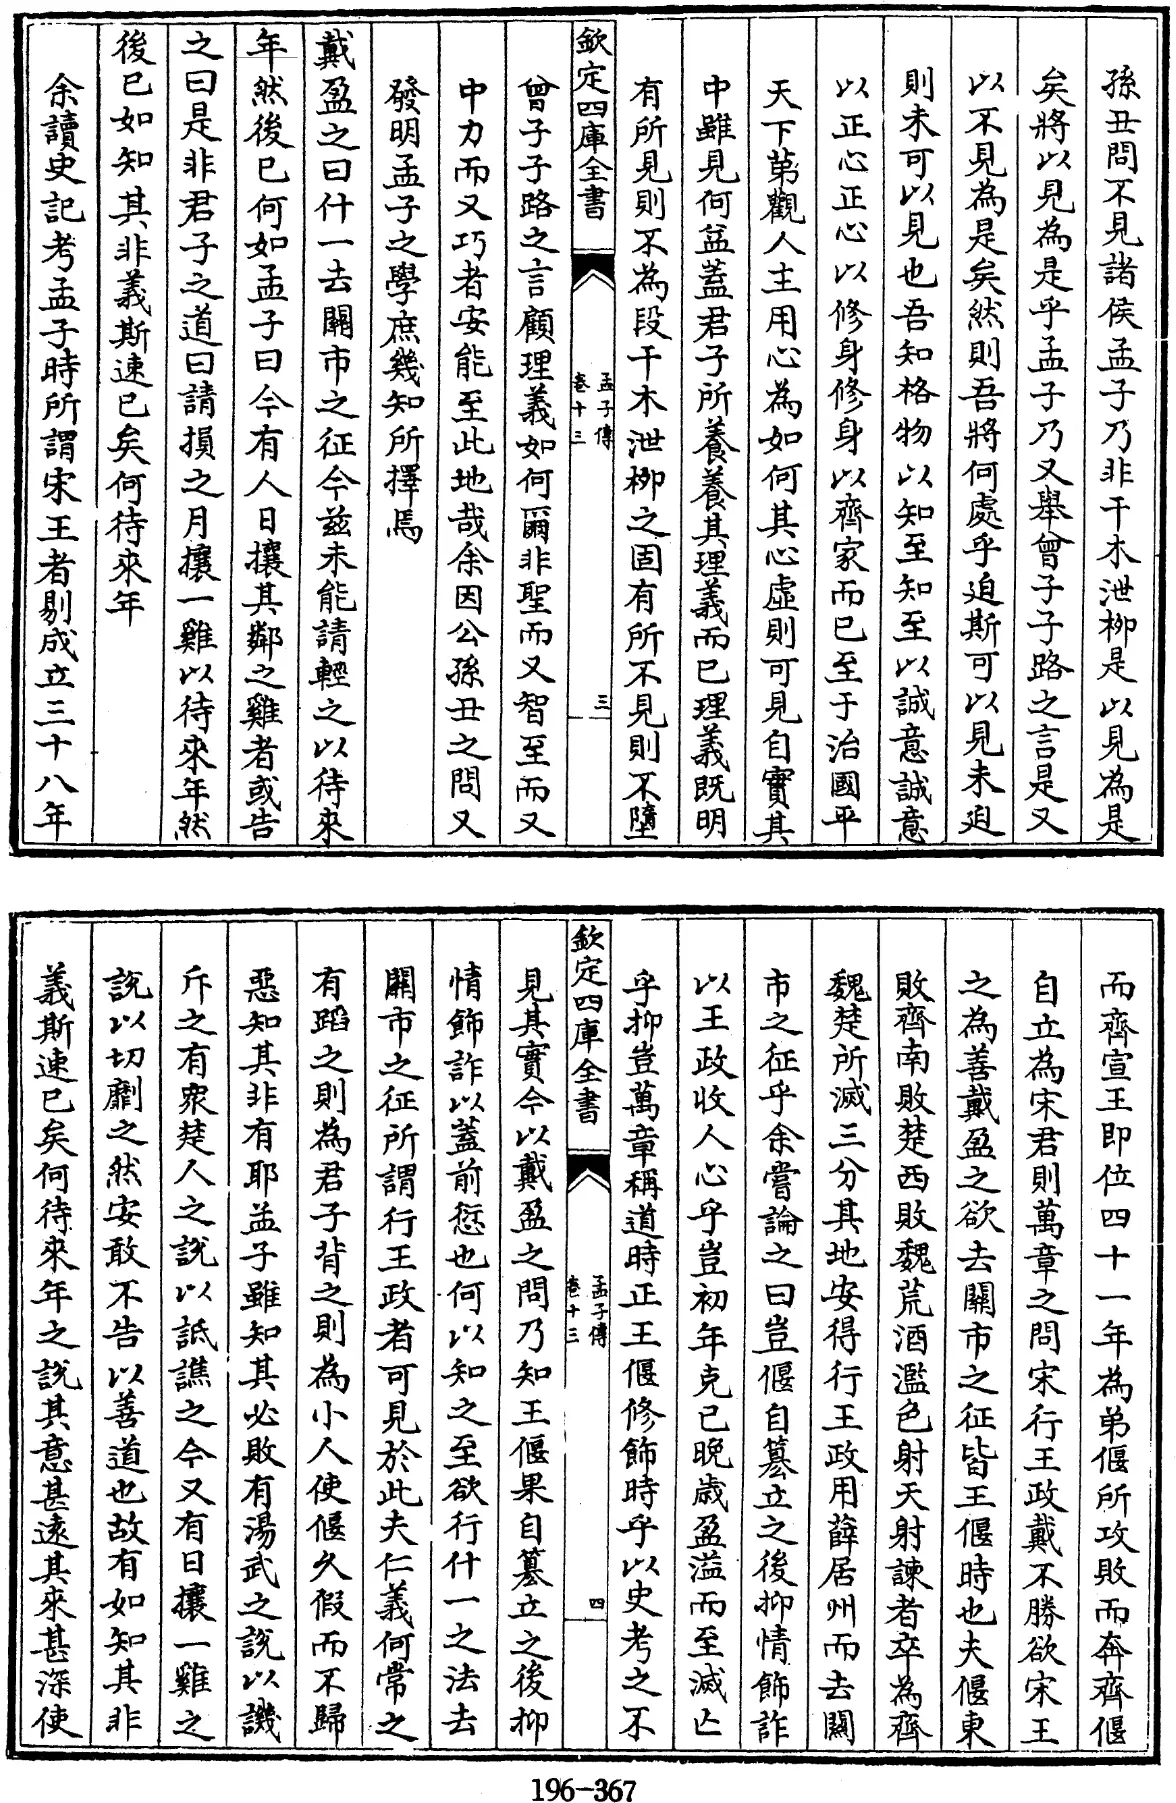 孫丑問不見諸侯孟子乃非干木泄柳是以見為是
矣將以見為是乎孟子乃又舉曾子子路之言是又
以不見為是矣然則吾將何處乎迫斯可以見未迫
則未可以見也吾知格物以知至知至以誠意誠意
以正心正心以修身修身以齊家而已至于治國平
天下第觀人主用心為如何其心虛則可見自實其
中雖見何益蓋君子所養養其理義而已理義既明
有所見則不為段干木泄柳之固有所不見則不墮
欽定四庫全書
孟子傳
卷十三
三
曾子子路之言顧理義如何爾非聖而又智至而又
中力而又巧者安能至此地哉余因公孫丑之問又
發明孟子之學庶幾知所擇焉
戴盈之曰什一去關市之征今兹未能請輕之以待來
年然後已何如孟子曰今有人日攘其鄰之雞者或告
之曰是非君子之道曰請損之月攘一雞以待來年然
後已如知其非義斯速已矣何待來年
余讀史記考孟子時所謂宋王者剔成立三十八年
而齊宣王即位四十一年為弟偃所攻敗而奔齊偃
自立為宋君則萬章之問宋行王政戴不勝欲宋王
之為善戴盈之欲去關市之征皆王偃時也夫偃東
敗齊南敗楚西敗魏荒酒濫色射天射諫者卒為齊
魏楚所滅三分其地安得行王政用薛居州而去關
市之征乎余嘗論之曰豈偃自篡立之後抑情飾詐
以王政收人心乎豈初年克已晚歲盈溢而至滅亡
乎抑豈萬章稱道時正王偃修飾時乎以史考之不
欽定四庫全書
孟子傳
卷十三
四
見其實今以戴盈之問乃知王偃果自篡立之後抑
情飾詐以蓋前愆也何以知之至欲行什一之法去
關市之征所謂行王政者可見於此夫仁義何常之
有蹈之則為君子背之則為小人使偃久假而不歸
惡知其非有耶孟子雖知其必敗有湯武之說以譏
斥之有衆楚人之說以詆譙之今又有日攘一雞之
說以切劘之然安敢不告以善道也故有如知其非
義斯速已矣何待來年之說其意甚遠其來甚深使
196-367